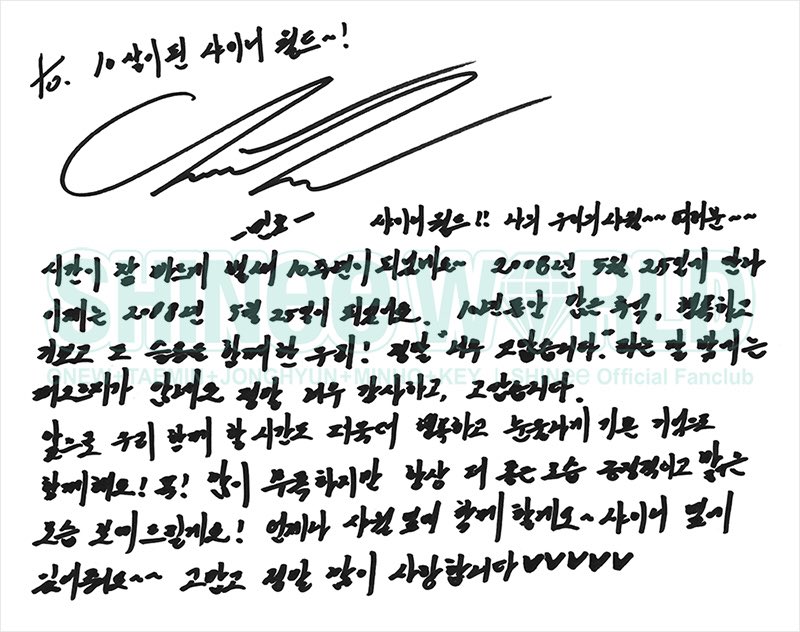 to. 10살이된 샤이니 월드~!
-민호- 샤이니월드!! 나의 우리의샤월~~ 여러분~~
시간이 참 빠르게 벌써 10주년이 되었네요~ 2008년 5월 25일에 만나
이제는 2018년 5월 25일이 되었어요. 10년동안 많은 추억, 행복하고
기쁘고 또 슬픔을 함께 한 우리! 정말 "너무 고맙습니다." 라는 말 밖에는
떠오르지가 않네요 정말 너무 감사하고, 고맙습니다.
앞으로 우리 함께 할 시간도 더욱더 행복하고 기쁜 기억으로
함께해요! 꼭! 많이 부족하지만 항상 더 좋은모습 긍정적이고 밝은
모습 보여드릴게요! 언제나 샤월 옆에 함께 할게요~ 샤이니 옆에
있어줘요~~ 고맙고 정말 많이 사랑합니다♥♥♥♥♥
SHINee WORLD
ONEW+TAEMIN+JONGHYUN+MINHO+KEY | SHINee Official Fanclub